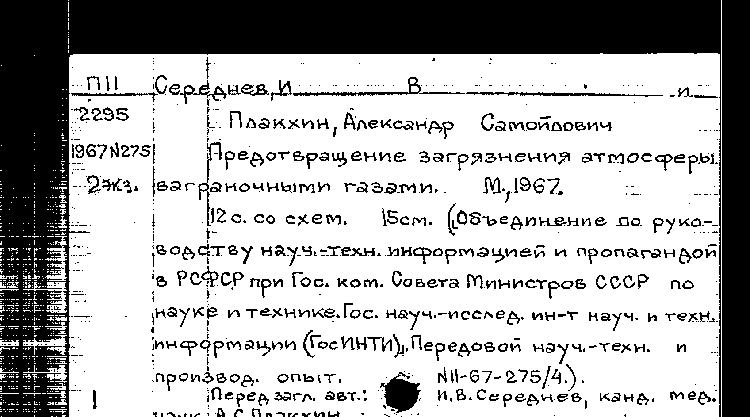 П11 Середнев, И В и
2295 Плакхин, Александр Самойлович
1967N275 Предотвращение загрязнения атмосферы
2экз. ваграночными газами. М., 1967.
12 с. со схем. 15см. (Объединение по руко-
водству науч.-техн. информацией и пропагандой
в РСФСР при Гос. ком. Совета Министров СССР по
науке и технике. Гос. науч.-исслед. ин-т науч. и техн.
информации (ГосИНТИ). Передовой науч.-техн. и
производ. опыт. N11-67-275/4.).
1 Перед загл. авт.: И.В. Середнев, канд. мед.
наук, А.С. Плакхин